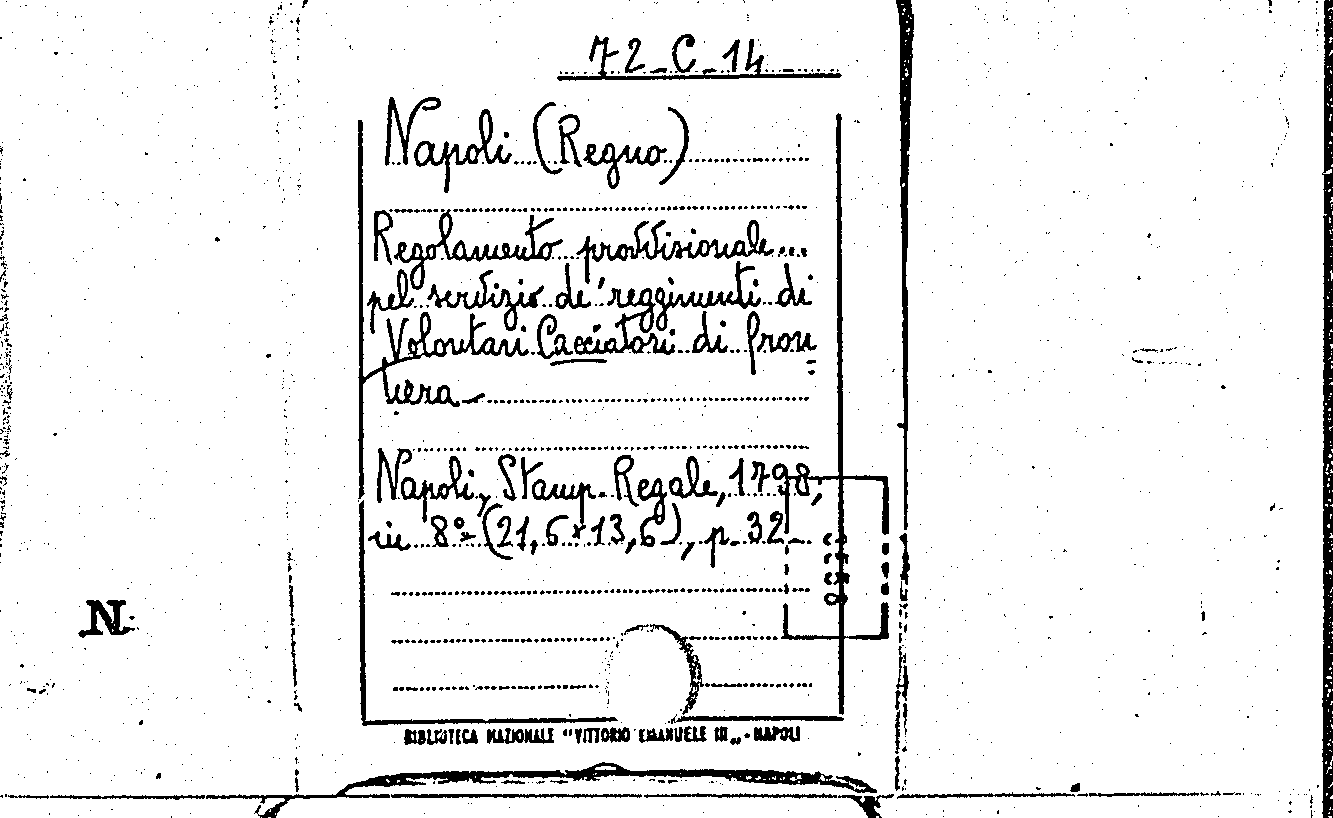 72_C_14
Napoli (Regno)
Regolamento provvisionale...
pel servizio de' reggimenti di
Volontari Cacciatori di fron=
tiera_
Napoli, Stamp. Regale, 1798,
in 8º (21,6x13,6), p. 32_
N.
BIBLIOTECA NAZIONALE "VITTORIO EMANUELE III„ - NAPOLI